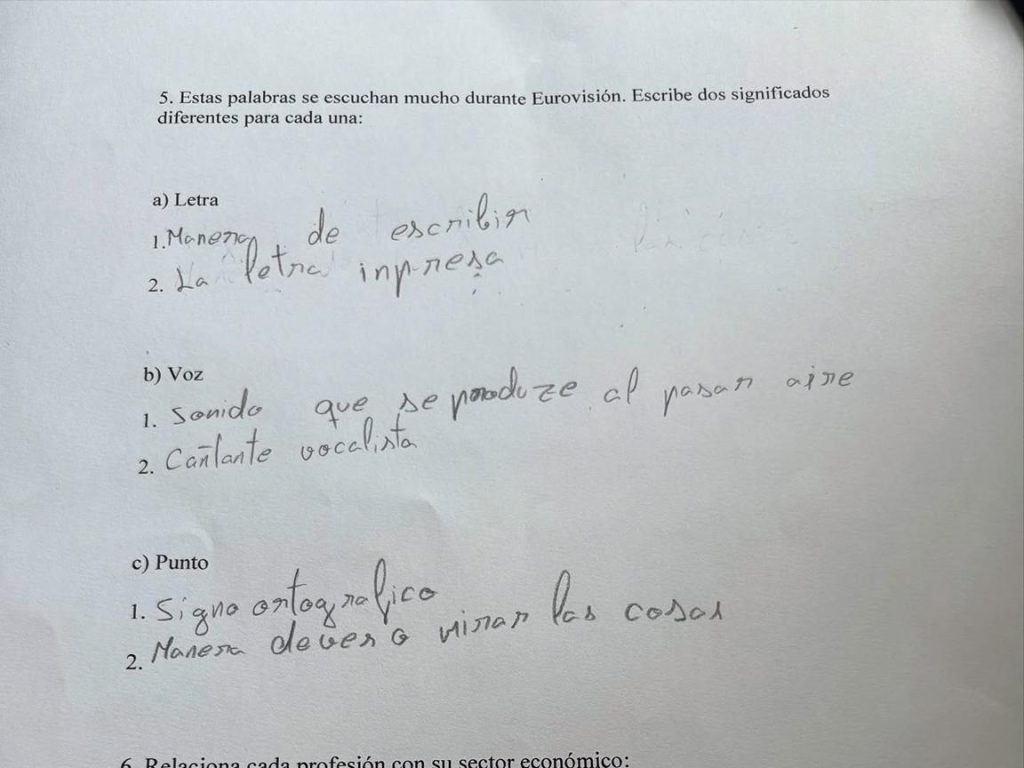 5. Estas palabras se escuchan mucho durante Eurovisión. Escribe dos significados
diferentes para cada una:
a) Letra
1. Manera de escribir
2. La letra inpresa
b) Voz
1. Sonido que se produze al pasar aire
2. Cantante vocalista
c) Punto
1. Signo ortografico
2. Manera de ver o mirar las cosas
6. Relaciona cada profesión con su sector económico: